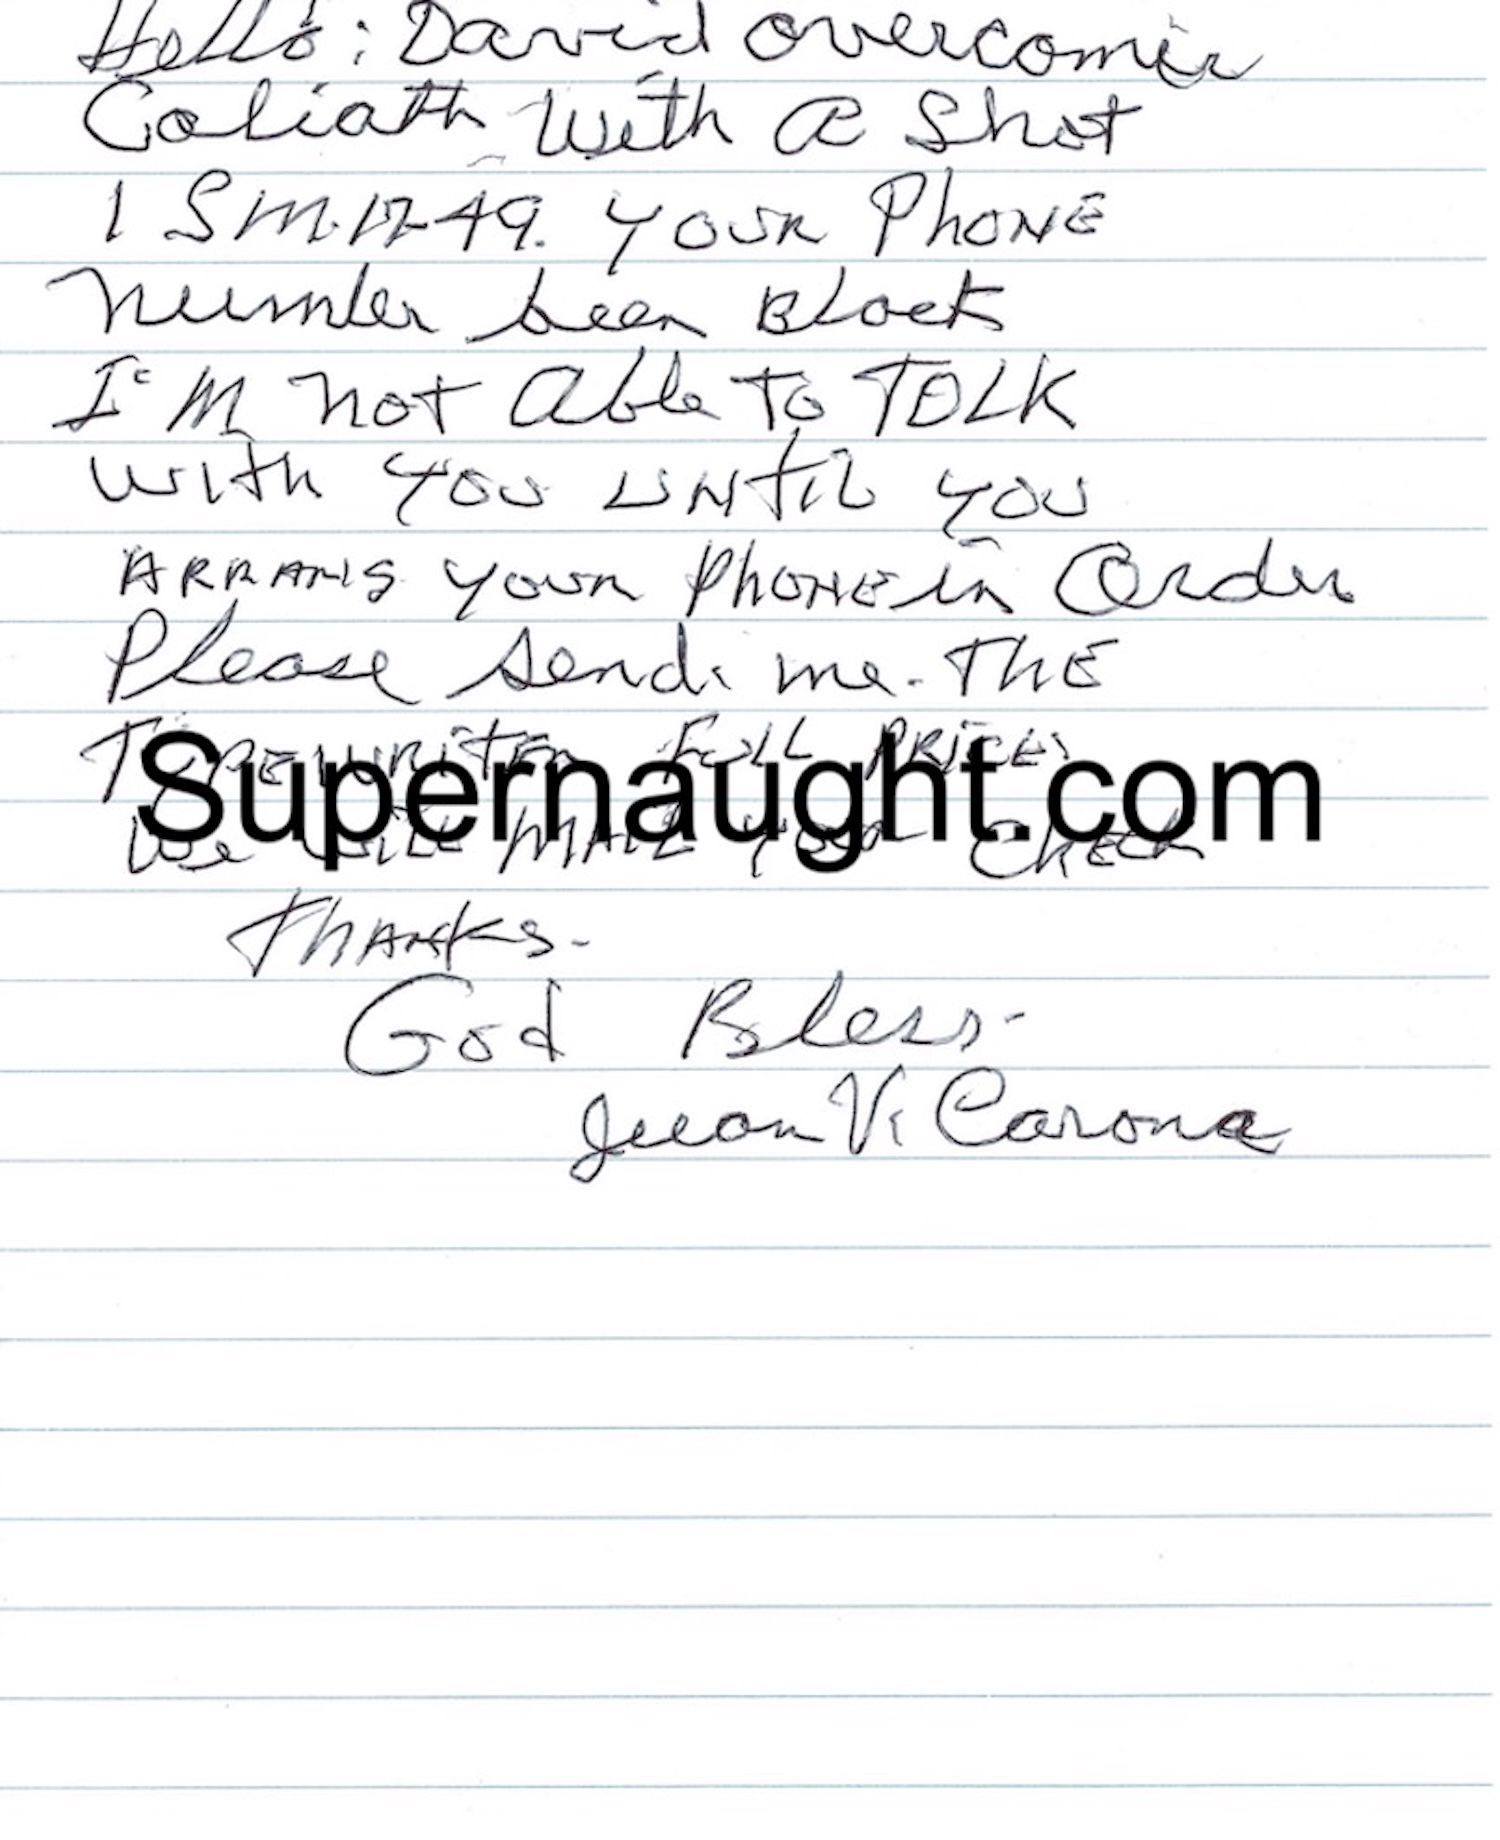 Hello: David overcomin
Goliath with a Shot
1 SM.17-49. your Phone
number been Block
I'm not able to TOLK
with you until you
ARRANG your phone in Order
Please send me. THE
TYPEWRITER FULL PRICE.
We will MAIL YOUR Check
Supernaught.com
Thanks.
God Bless.
Juan V. Corona